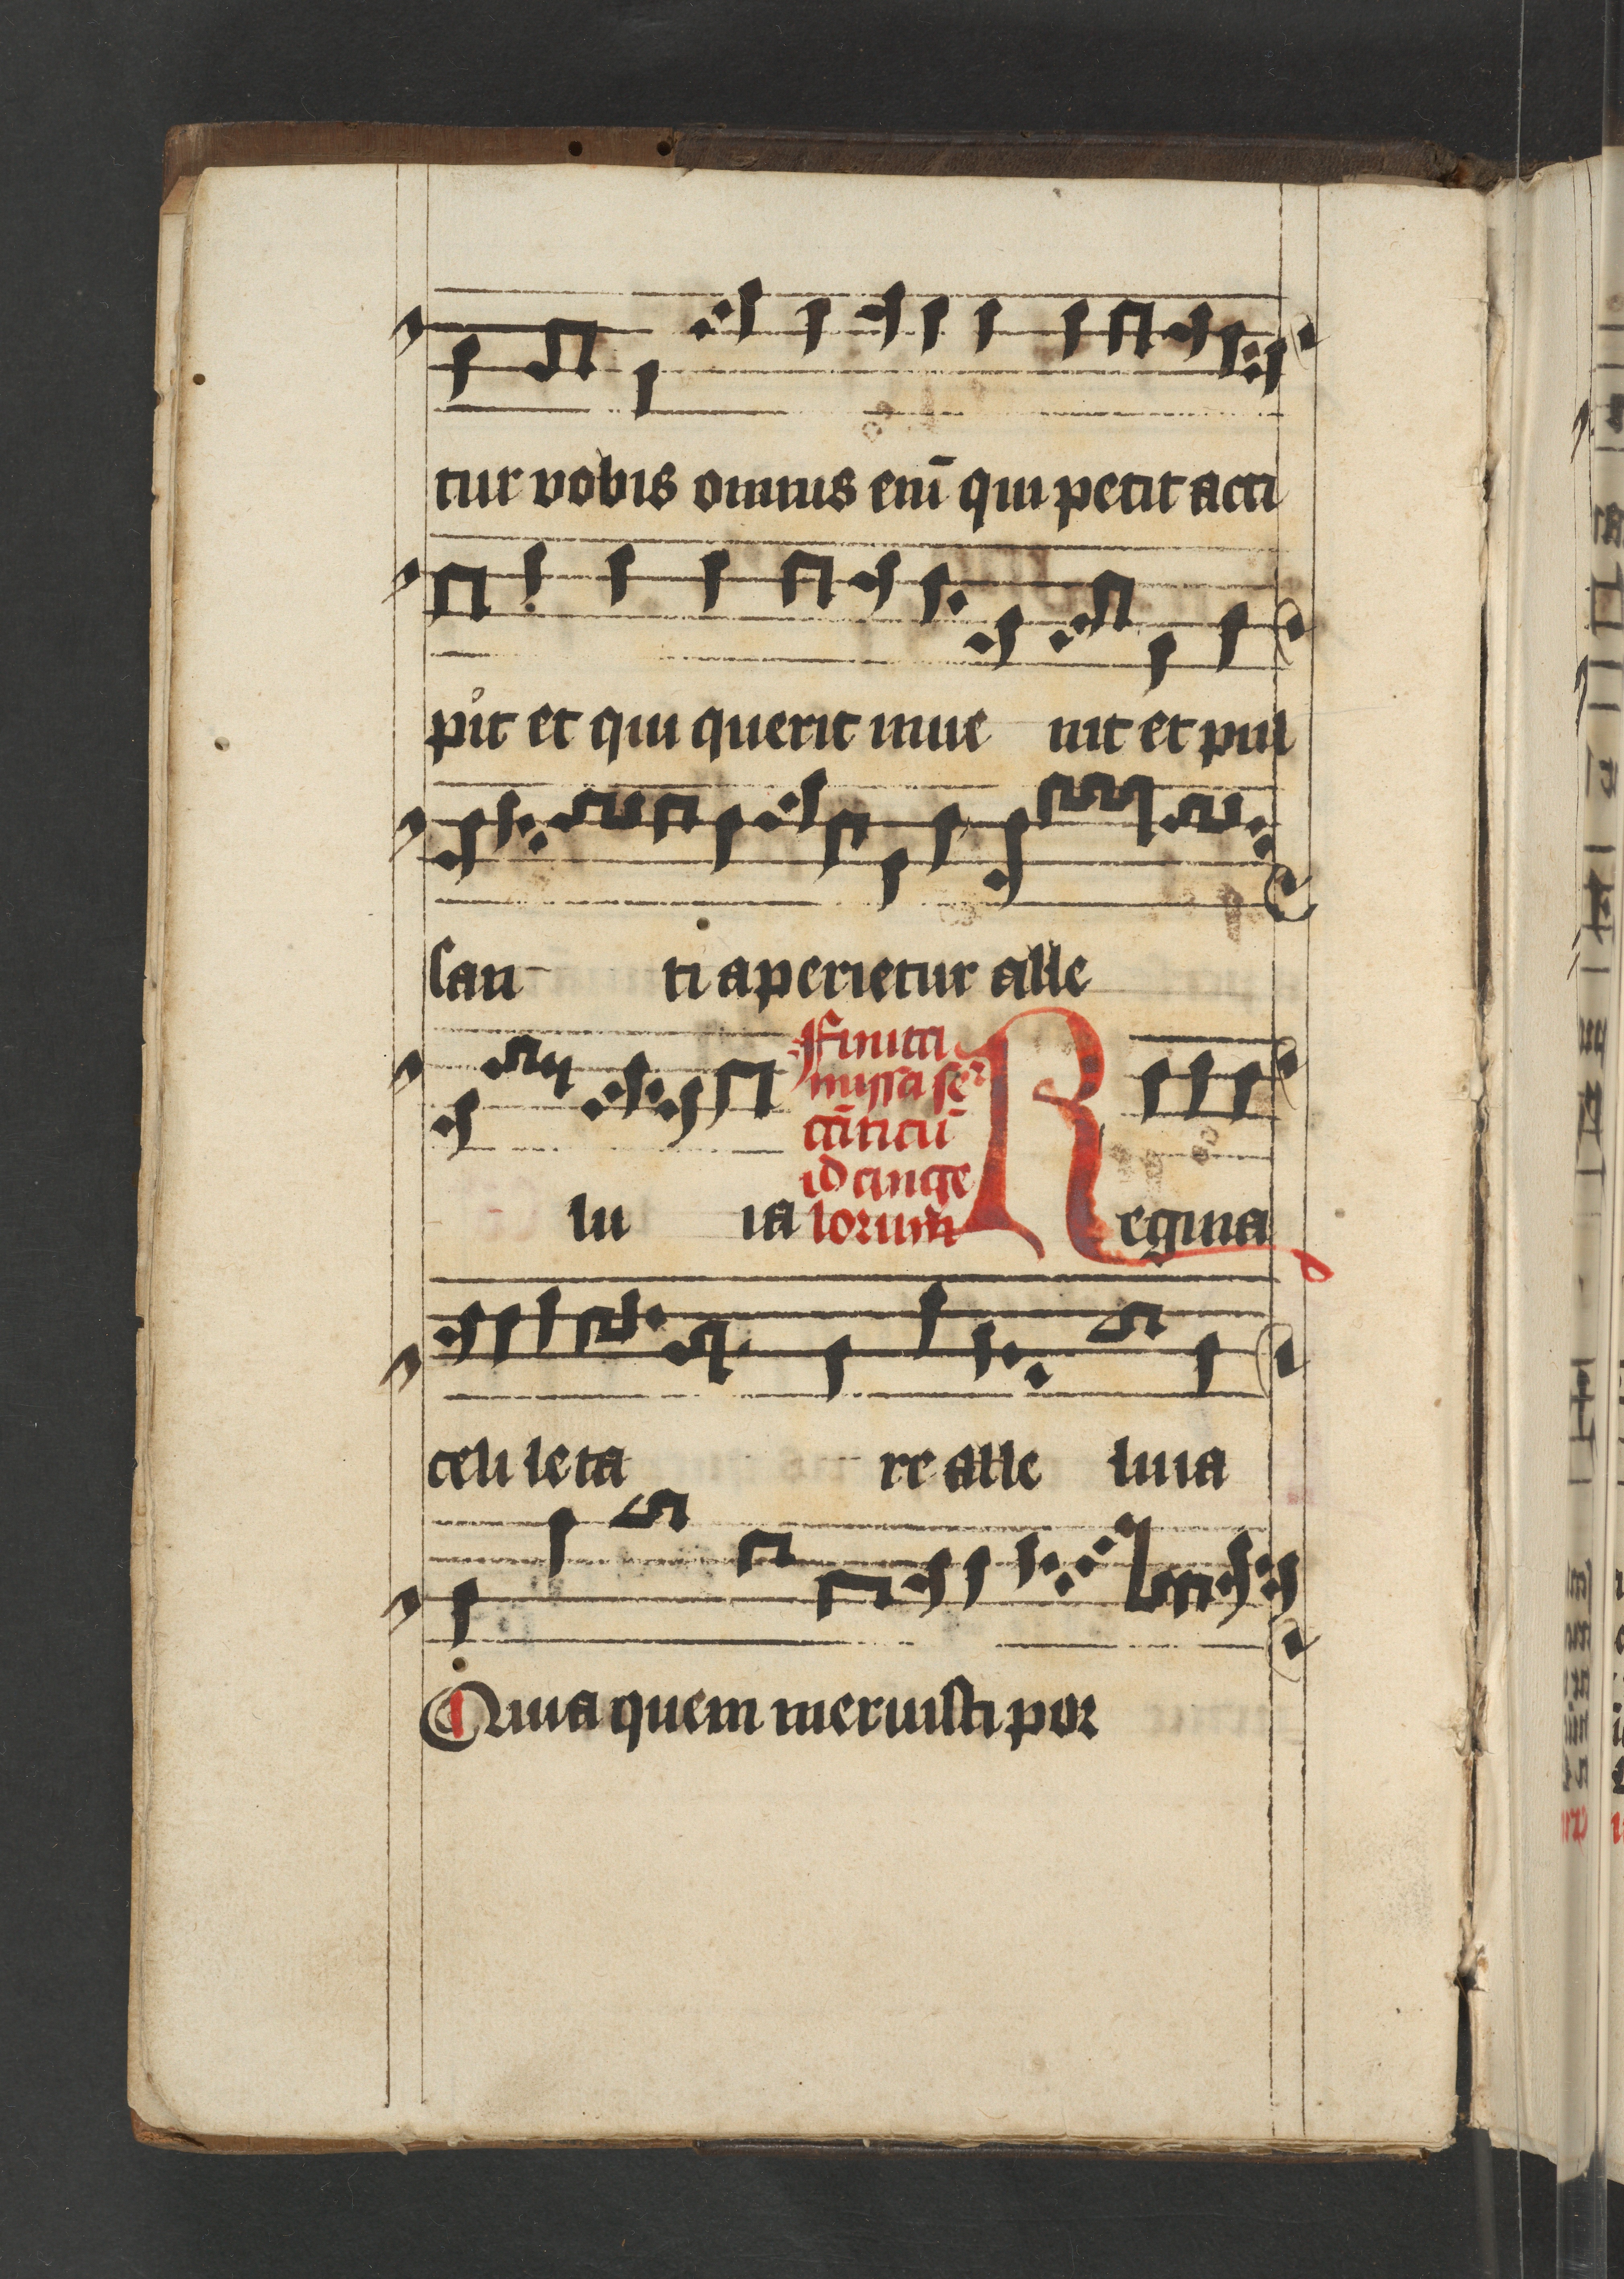 tur vobis omnis enī qui petit acci
pit et qui querit inue nit et pul
san ti aperietur alle
Finita
missa se
cūticū
id ange
lorum
lu ia
Regina
celi leta re alle luia
Quia quem meruisti por